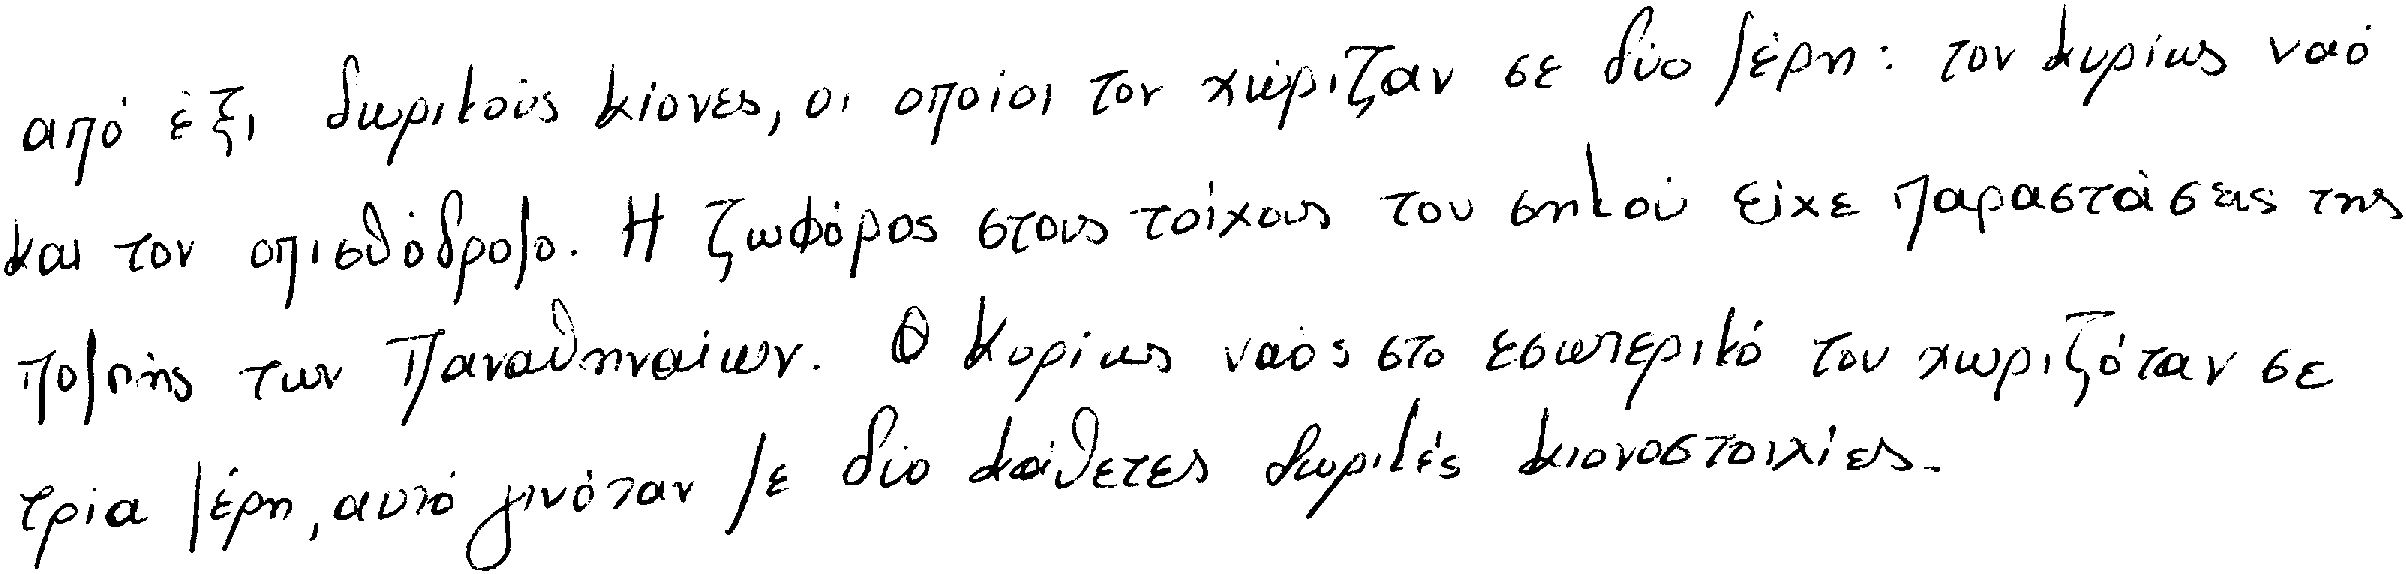 από έξι δωρικούς κίονες, οι οποίοι τον χώριζαν σε δύο μέρη: τον κυρίως ναό
και τον οπισθόδρομο. Η ζωφόρος στους τοίχους του σηκού είχε παραστάσεις της
πομπής των Παναθηναίων. Ο κυρίως ναός στο εσωτερικό του χωριζόταν σε
τρία μέρη, αυτό γινόταν με δύο κάθετες δωρικές κιονοστοιχίες.